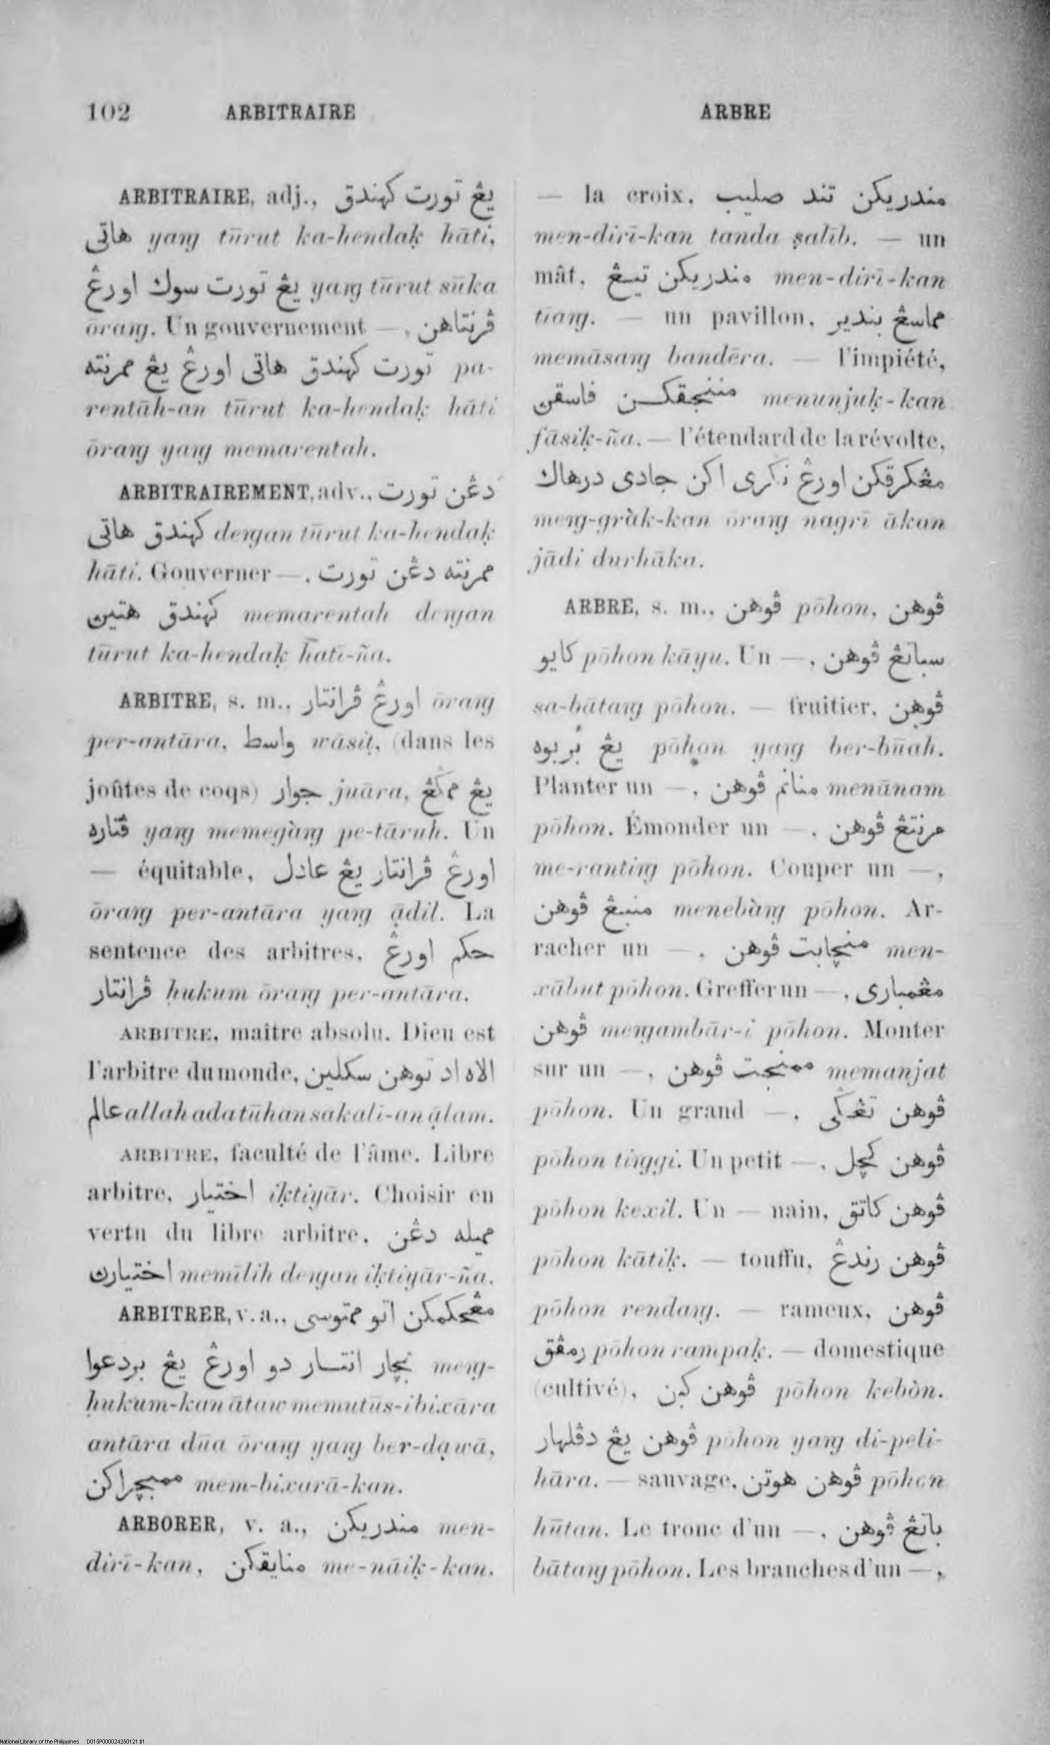 102 ARBITRAIRE ARBRE
ARBITRAIRE, adj., يڠ تورت كهندق
هاتى yaṅg tūrut ka-hendaḳ hāti,
يڠ تورت سوك اورڠ yaṅg tūrut sūka
ōraṅg. Un gouvernement —, ڤرنتاهن
تورت كهندق هاتى اورڠ يڠ ممرنته pa-
rentāh-an tūrut ka-hendaḳ hāti
ōraṅg yaṅg memarentah.
ARBITRAIREMENT, adv., دڠن تورت
كهندق هاتى deṅgan tūrut ka-hendaḳ
hāti. Gouverner —, ممرنته دڠن تورت
كهندق هتين memarentah deṅgan
tūrut ka-hendaḳ hatī-ña.
ARBITRE, s. m., اورڠ ڤرانتار ōraṅg
per-antāra, واسط wāsiṭ, (dans les
joûtes de coqs) جوار juāra, يڠ ممڬڠ
ڤتاره yaṅg memegàṅg pe-tāruh. Un
— équitable, اورڠ ڤرانتار يڠ عادل
ōraṅg per-antāra yaṅg ạ̄dil. La
sentence des arbitres, حكم اورڠ
ڤرانتار ḥukum ōraṅg per-antāra.
ARBITRE, maître absolu. Dieu est
l'arbitre du monde, الاه اد توهن سكلين
عالم allah ada tūhan sakali-an ạ̄lam.
ARBITRE, faculté de l'âme. Libre
arbitre, اختيار iḳtiyār. Choisir en
vertu du libre arbitre, مميله دڠن
اختيارڽ memīlih deṅgan iḳtiyār-ña.
ARBITRER, v. a., مڠحكمكن اتو ممتوسى
بچار انتار دو اورڠ يڠ بردعوا meṅg-
ḥukum-kan ātaw memutūs-i bixāra
antāra dūa ōraṅg yaṅg ber-dạwā,
ممبچراكن mem-bixarā-kan.
ARBORER, v. a., مندريكن men-
dirī-kan, منايقكن me-nāiḳ-kan.
— la croix, مندريكن تند صليب
men-dirī-kan tanda ṣalīb. — un
mât, مندريكن تيڠ men-dirī-kan
tiaṅg. — un pavillon, مماسڠ بندير
memāsaṅg bandēra. — l'impiété,
مننجقكن فاسقن menunjuḳ-kan
fāsiḳ-ña. — l'étendard de la révolte,
مڠكرقكن اورڠ نڬرى اكن جادى درهاك
meṅg-gràk-kan ōraṅg nagrī ākan
jādi durhāka.
ARBRE, s. m., ڤوهن pōhon, ڤوهن
كايو pōhon kāyu. Un —, سباتڠ ڤوهن
sa-bātaṅg pōhon. — fruitier, ڤوهن
يڠ بربوه pōhon yaṅg ber-būah.
Planter un —, منانم ڤوهن menānam
pōhon. Émonder un —, مرنتڠ ڤوهن
me-rantiṅg pōhon. Couper un —,
منبڠ ڤوهن menebàṅg pōhon. Ar-
racher un —, منچابت ڤوهن men-
xābut pōhon. Greffer un —, مڠمبارى
ڤوهن meṅgambār-i pōhon. Monter
sur un —, ممنجت ڤوهن memanjat
pōhon. Un grand —, ڤوهن تڠڬى
pōhon tiṅggi. Un petit —, ڤوهن كچل
pōhon kexil. Un — nain, ڤوهن كاتق
pōhon kātiḳ. — touffu, ڤوهن رندڠ
pōhon rendaṅg. — rameux, ڤوهن
رمڤق pōhon rampaḳ. — domestique
(cultivé), ڤوهن كبن pōhon kebòn.
ڤوهن يڠ دڤلهار pōhon yaṅg di-peli-
hāra. — sauvage, ڤوهن هوتن pōhon
hūtan. Le tronc d'un —, باتڠ ڤوهن
bātaṅg pōhon. Les branches d'un —,
National Library of the Philippines